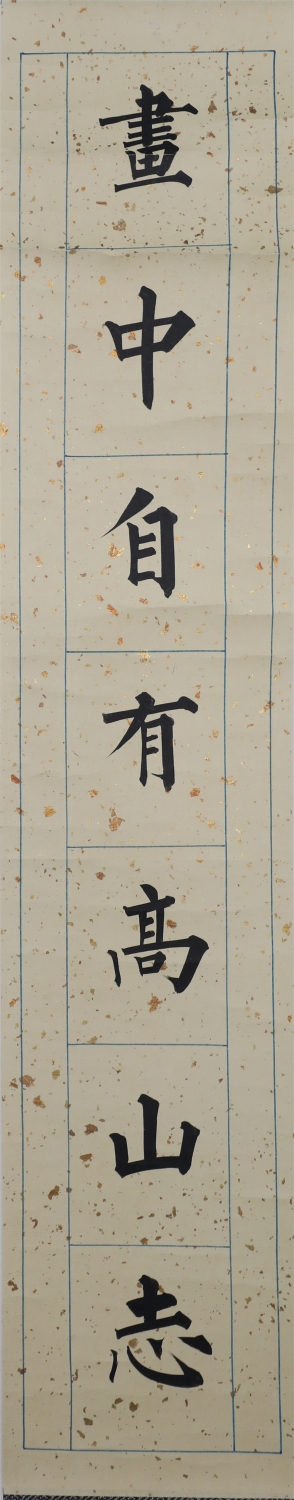 畫中自有髙山志